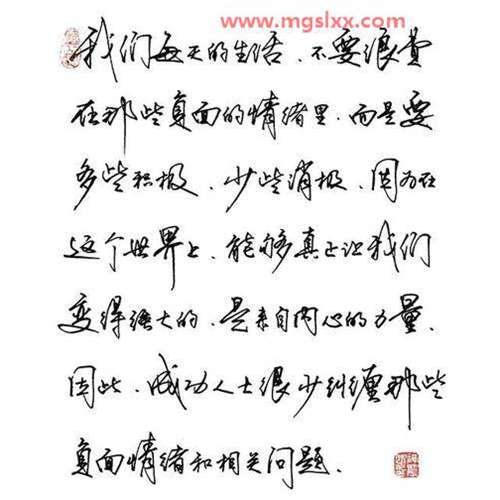 www.mgslxx.com
我们每天的生活、不要浪费
在那些负面的情绪里.而是要
多些积极、少些消极、因为在
这个世界上、能够真正让我们
变得强大的、是来自内心的力量、
因此、成功人士很少纠缠那些
负面情绪和相关问题.